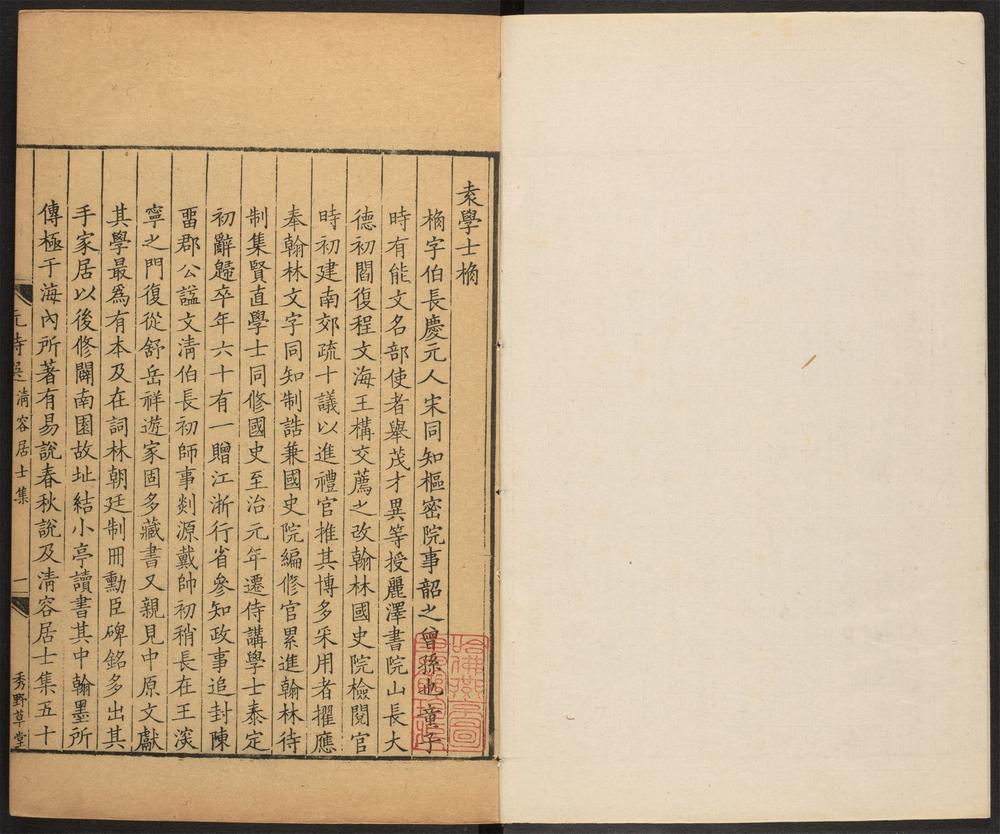 袁學士桷
桷字伯長慶元人宋同知樞密院事韶之曾孫也童子
時有能文名部使者舉茂才異等授麗澤書院山長大
德初閻復程文海王構交薦之改翰林國史院檢閱官
時初建南郊疏十議以進禮官推其博多采用者擢應
奉翰林文字同知制誥兼國史院編修官累進翰林待
制集賢直學士同修國史至治元年遷侍講學士泰定
初辭歸卒年六十有一贈江浙行省參知政事追封陳
畱郡公謚文淸伯長初師事剡源戴帥初稍長在王深
寧之門復從舒岳祥遊家固多藏書又親見中原文獻
其學最爲有本及在詞林朝廷制冊勳臣碑銘多出其
手家居以後修闢南園故址結小亭讀書其中翰墨所
傳極于海內所著有易說春秋說及淸容居士集五十
元詩選 淸容居士集 一 秀野草堂